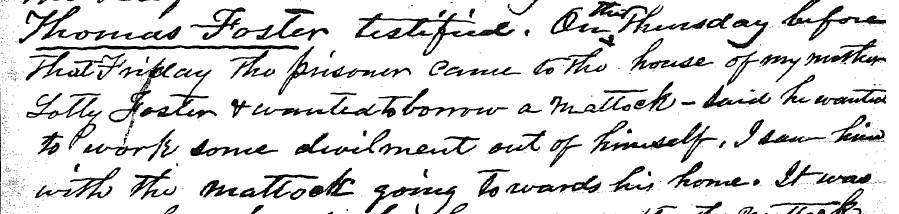 Thomas Foster testified. On the Thursday before
that Friday the prisoner came to the house of my mother
Lotty Foster & wanted to borrow a mattock - said he wanted
to work some divilment out of himself. I saw him
with the mattock going towards his home. It was
mattock